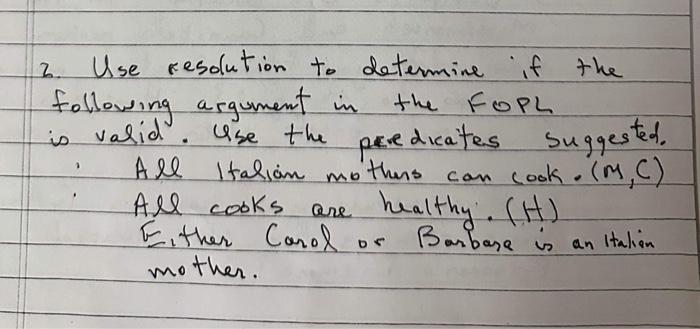 2. Use resolution to determine if the
following argument in the FOPL
is valid. Use the predicates suggested.
All Italian mothers can cook. (M, C)
All cooks are healthy. (H)
Either Carol or Barbara is an Italian
mother.